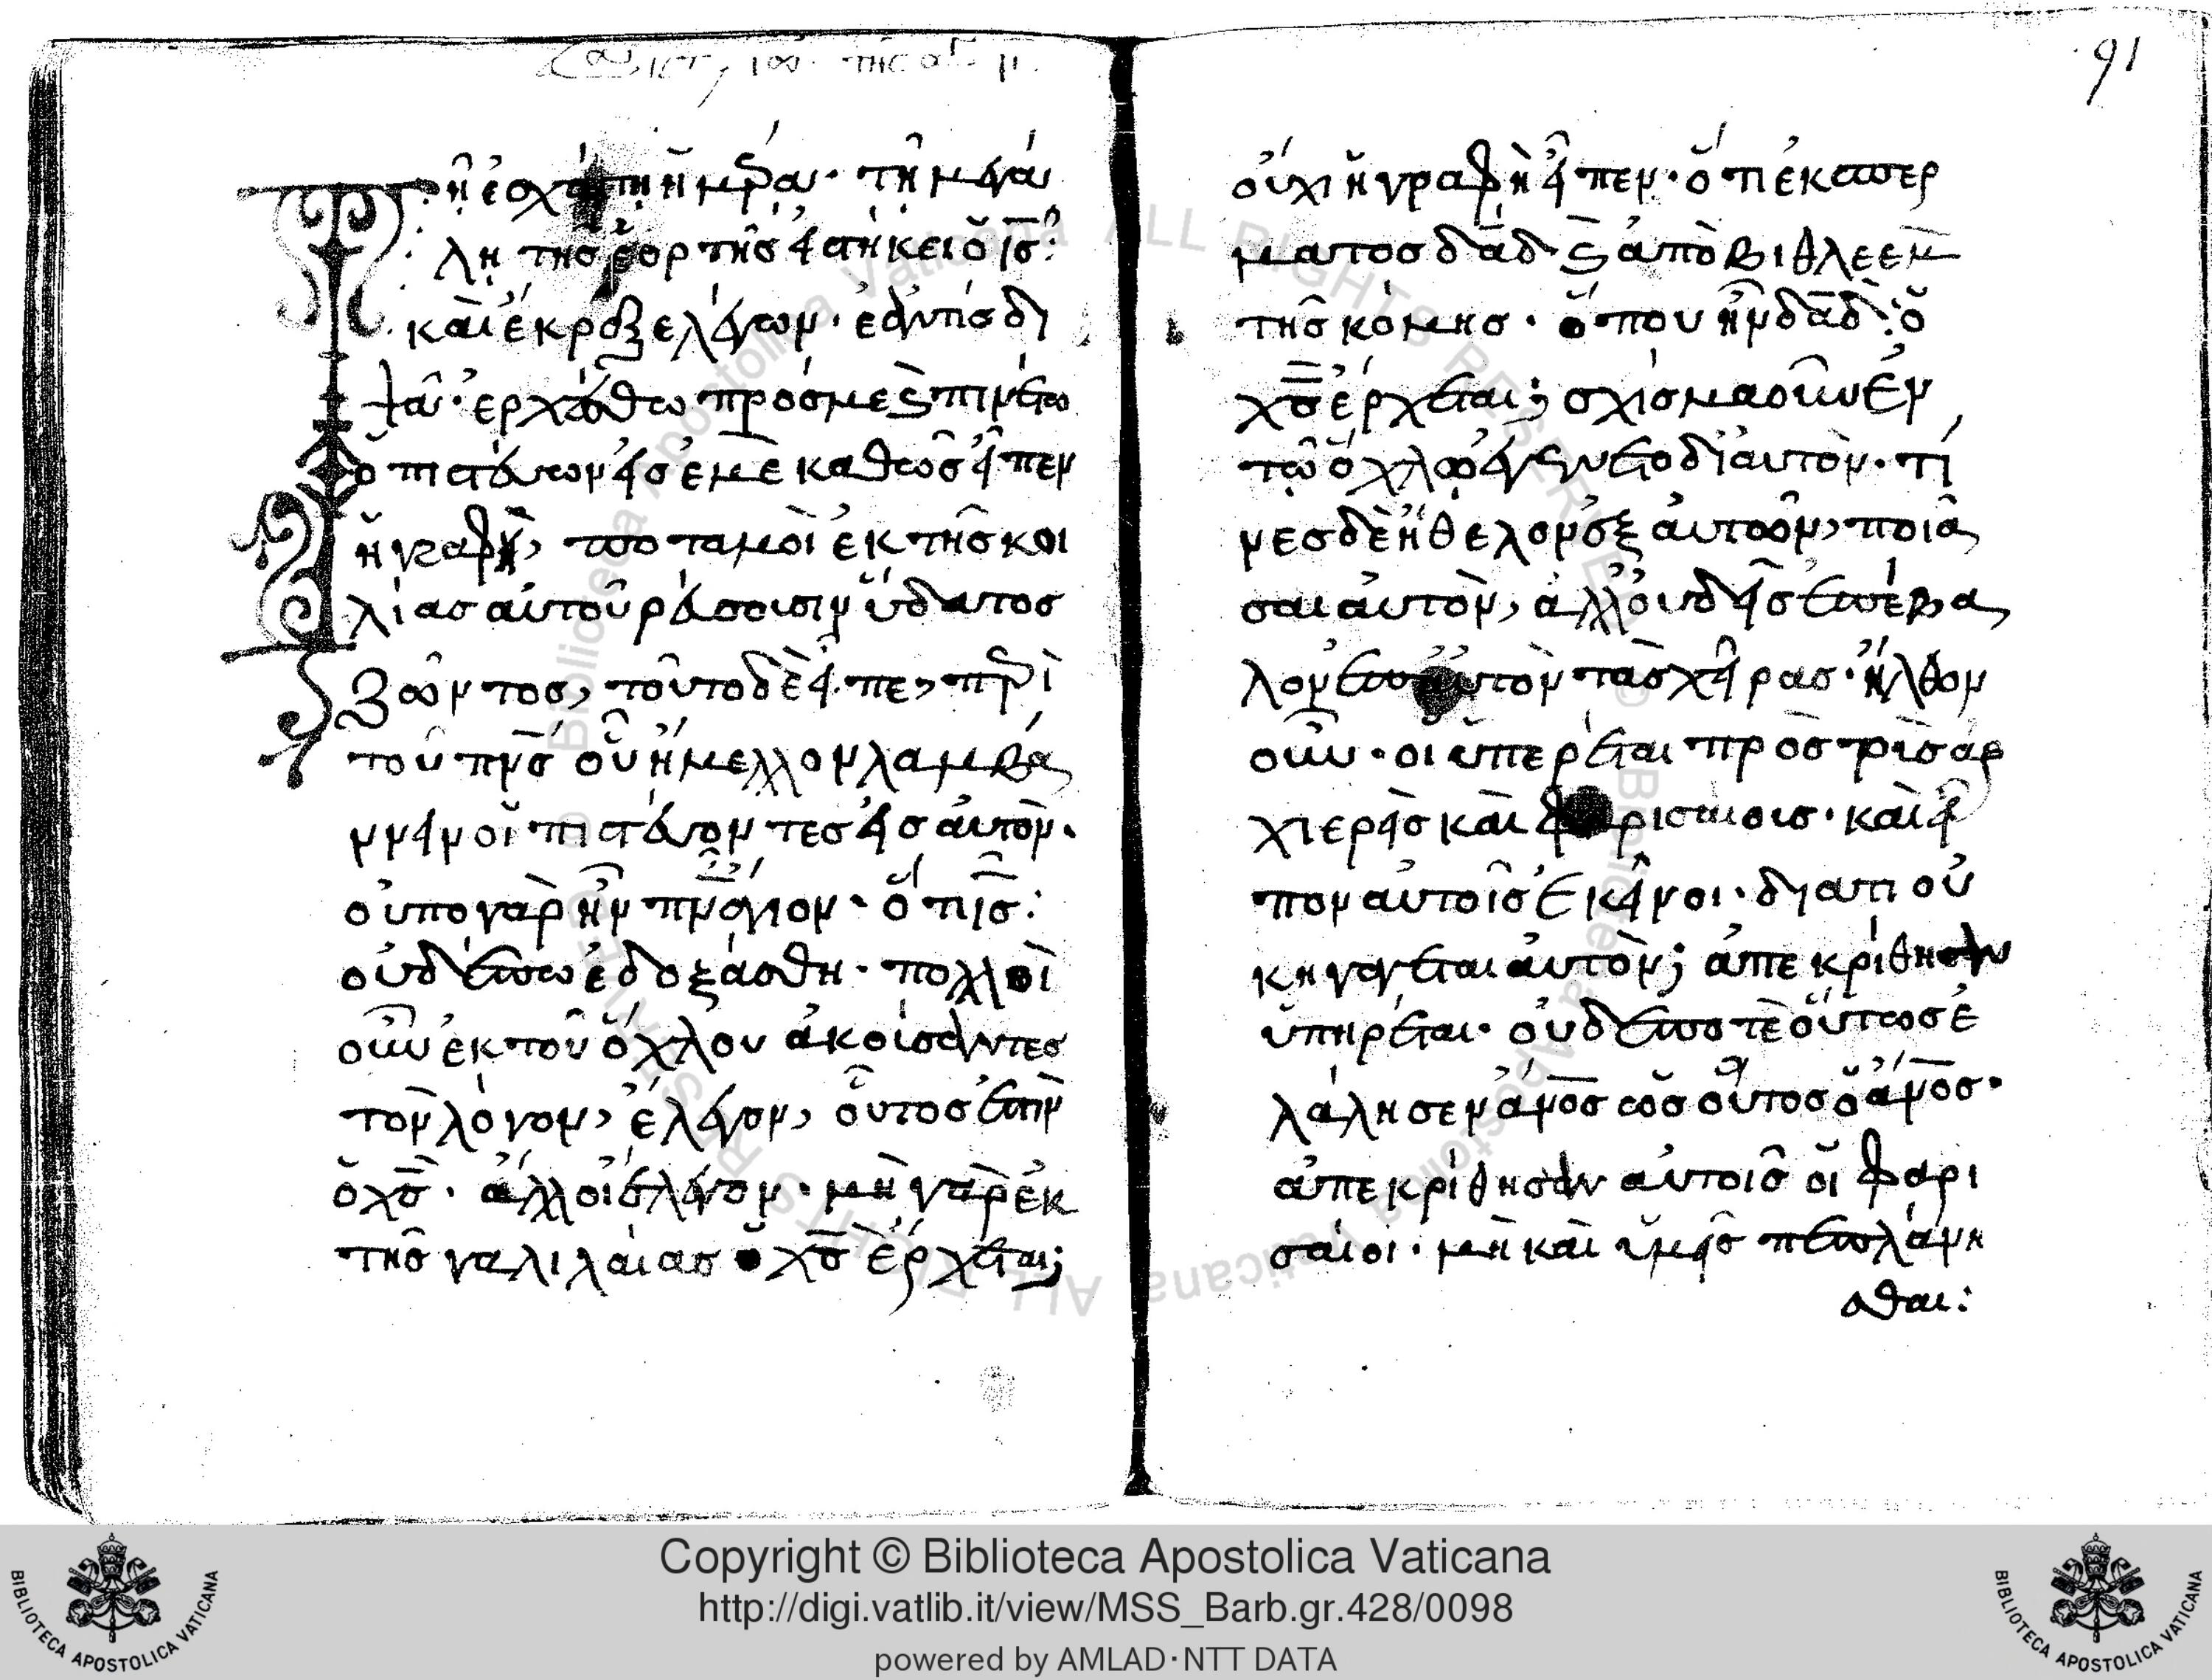 91
Τῆ ἐσχάτη ἡμέρα· τῆ μεγά
λη τῆς ἑορτῆς εἱστήκει ὁ ι̅ς̅·
καὶ ἔκραξε λέγων· ἐάν τις δι
ψᾶ· ἐρχέσθω πρός με καὶ πινέτω
ὁ πιστεύων εἰς ἐμὲ καθὼς εἶπεν
ἡ γραφὴ, ποταμοὶ ἐκ τῆς κοι
λίας αὐτοῦ ρεύσουσιν ὕδατος
ζῶντος, τοῦτο δὲ εἶπε, περὶ
τοῦ π̅ν̅ς̅ οὗ ἤμελλον λαμβά
νειν οἱ πιστεύοντες εἰς αὐτὸν·
οὔπο γὰρ ἦν π̅ν̅α̅ ἅγιον· ὅτι ι̅ς̅·
οὐδέπω ἐδοξάσθη· πολλοὶ
οὖν ἐκ τοῦ ὄχλου ἀκούσαντες
τὸν λόγον, ἔλεγον, οὗτος ἐστὶν
ὁ χ̅ς̅· ἄλλοι ἔλεγον· μὴ γὰρ ἐκ
τῆς γαλιλαίας ὁ χ̅ς̅ ἔρχεται;
οὐχὶ ἡ γραφὴ εἶπεν· ὅτι ἐκ σπερ
ματος δ̅α̅δ̅ καὶ ἀπὸ βιθλεεμ
τῆς κόμης· ὅπου ἦν δ̅α̅δ̅· ὁ
χ̅ς̅ ἔρχεται; σχίσμα οὖν ἐν
τῶ ὄχλω ἐγένετο δι αὐτὸν· τι
νες δὲ ἤθελον ἐξ αὐτῶν, πιά
σαι αὐτὸν, ἀλλ οὐδεὶς ἐπέβα
λον ἐπ αὐτὸν τὰς χεῖρας· ἦλθον
οὖν· οἱ ὑπερέται πρὸς τοὺς ἀρ
χιερεῖς καὶ φαρισαίους· καὶ εἶ
πον αὐτοῖς ἐκεῖνοι· διατί οὐ
κ ηγάγεται αὐτὸν; ἀπεκρίθησαν
ὑπηρέται· οὐδέποτε οὕτως ἐ
λάλησεν α̅ν̅ο̅ς̅ ὡς οὗτος ὁ α̅ν̅ο̅ς̅·
ἀπεκρίθησαν αὐτοῖς οἱ φαρι
σαίοι· μὴ καὶ ὑμεῖς πεπλάνη
σθαι:
Copyright © Biblioteca Apostolica Vaticana
http://digi.vatlib.it/view/MSS_Barb.gr.428/0098
powered by AMLAD·NTT DATA
BIBLIOTECA APOSTOLICA VATICANA
BIBLIOTECA APOSTOLICA VATICANA